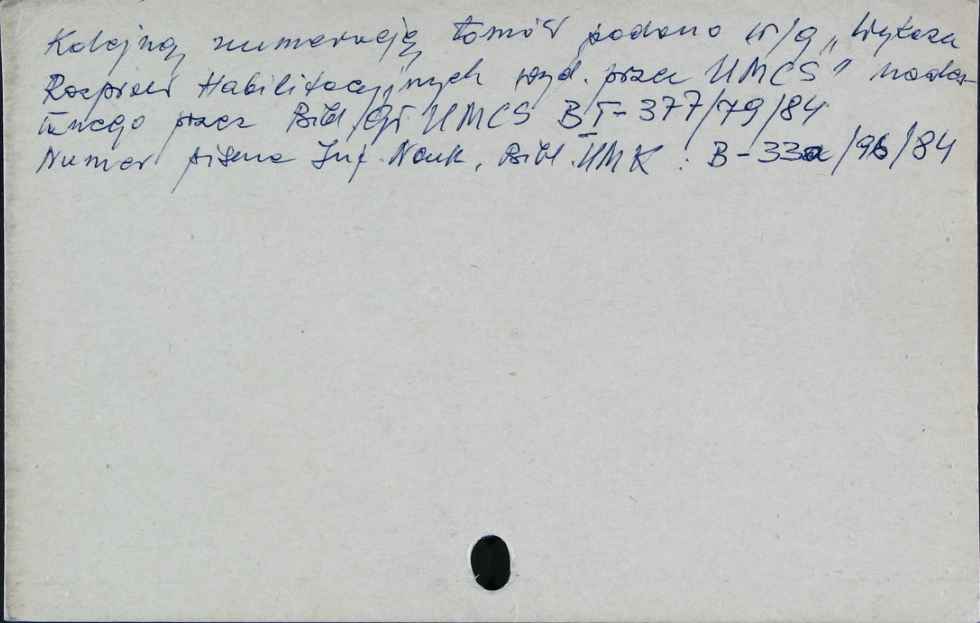 Kolejną numerację tomów podano w/g „Wykazu
Rozpraw Habilitacyjnych wyd. przez UMCS" nades-
łanego przez Bibl. Gł. UMCS BI-377/79/84
Numer pisma Inf. Nauk. Bibl. UMK : B-33a/96/84